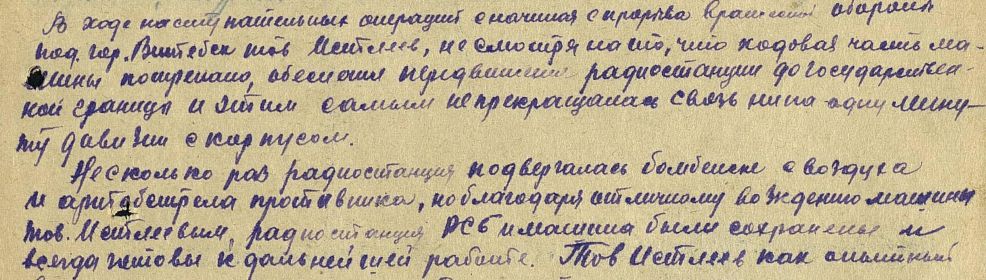 В ходе наступательных операций сначиная спрорыва вражеской обороны
под гор. Витебск тов Истлеев, не смотря на то, что ходовая часть ма-
шины потрепано, обеспечил передвижения радиостанции до государствен-
ной границы и этим самым не прекращалась связь ни на одну мину-
ту дивизии с корпусом.
Несколько раз радиостанция подвергалась бомбешке с воздуха
и артобстрела противника, но благодаря отличному вождению машины
тов. Истлеевым, радиостанция РСБ и машина были сохранены и
всегда готовы к дальнейшей работе. Тов Истлеев как опытный